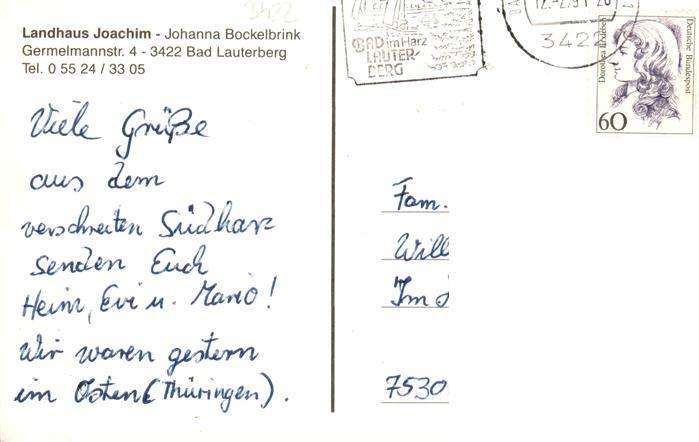 3422
Landhaus Joachim - Johanna Bockelbrink
Germelmannstr. 4 - 3422 Bad Lauterberg
Tel. 0 55 24 / 33 05
Viele Grüße
aus dem
verschneiten Südharz
senden Euch
Heini, Evi u. Mario!
Wir waren gestern
im Osten (Thüringen).
BAD im Harz
LAUTER-
BERG
12.-2.91
3422
Dorothea Erxleben
Deutsche Bundespost
60
Fam.
Will
Im
7530